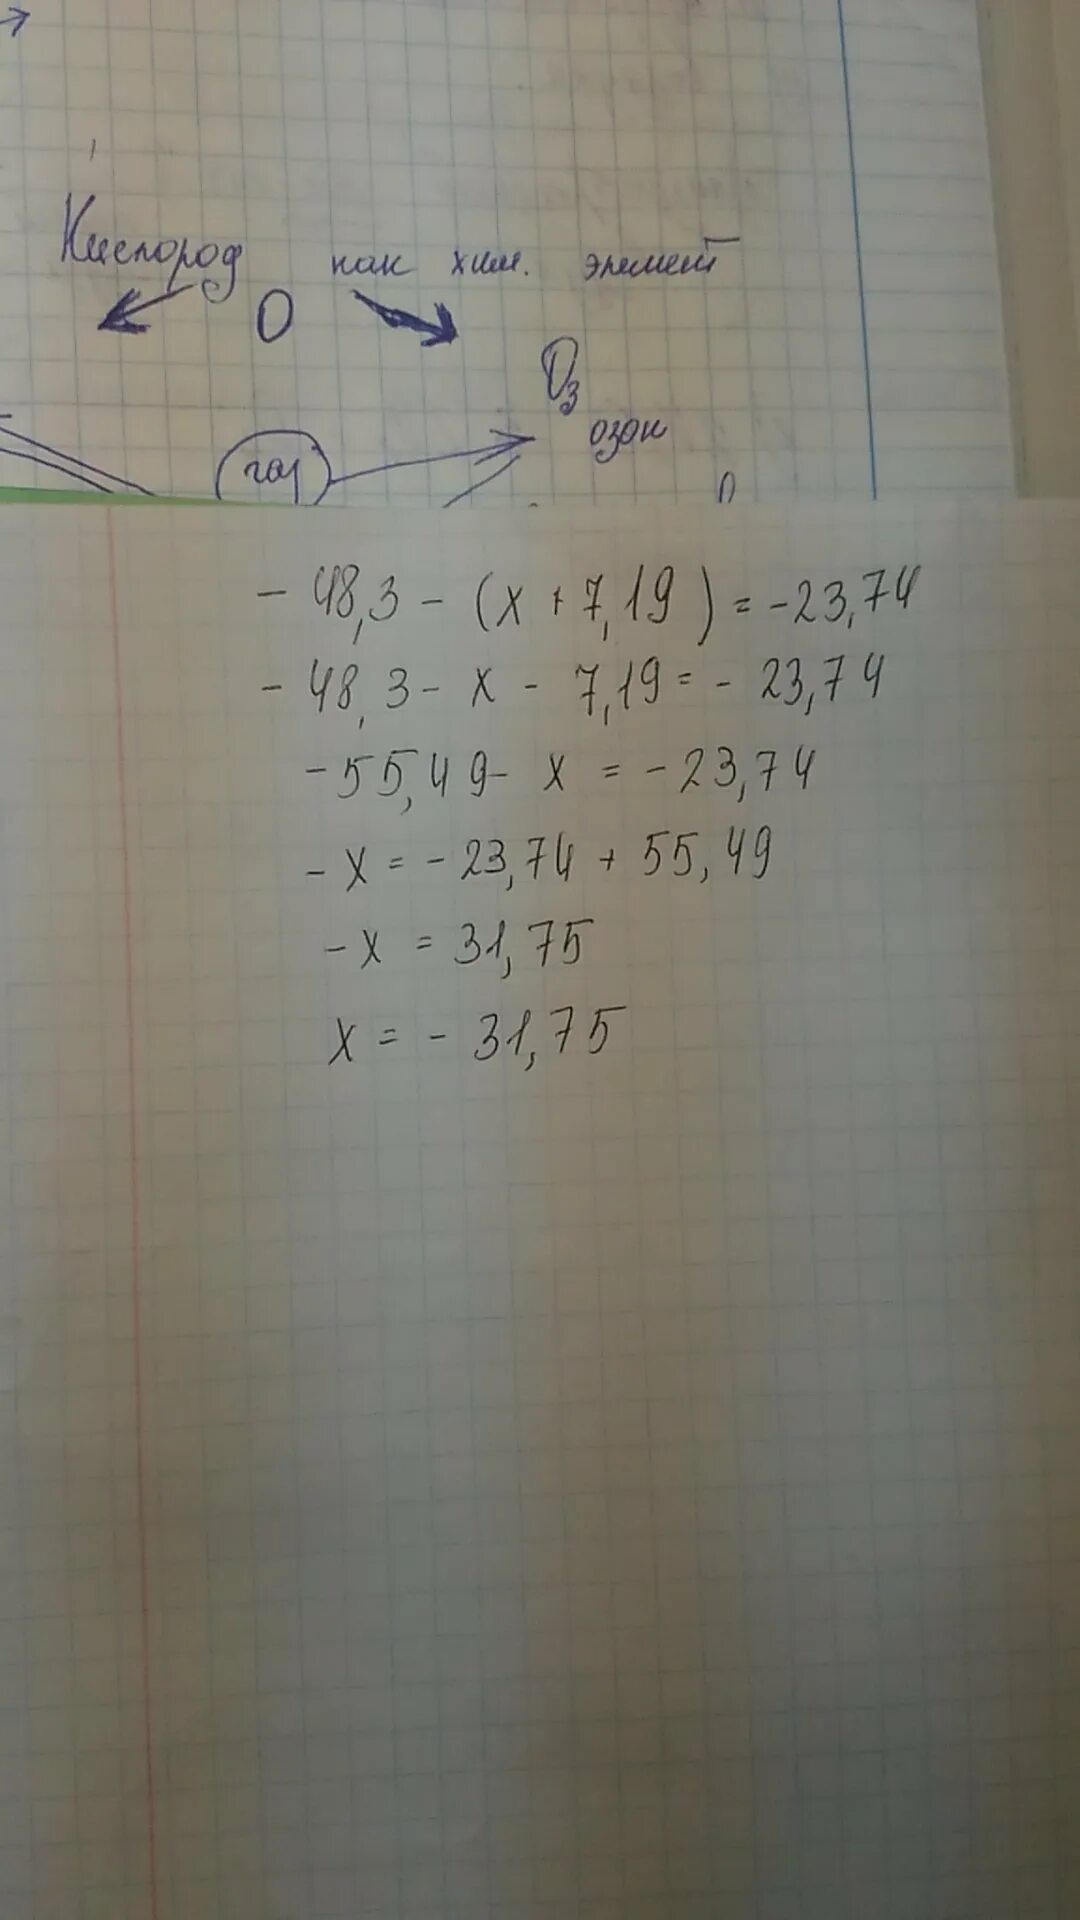 Кислород как хим. элемент
O
O₃
озон
газ
- 48,3 - (x + 7,19) = -23,74
- 48,3 - x - 7,19 = - 23,74
- 55,49 - x = - 23,74
- x = - 23,74 + 55,49
- x = 31,75
x = - 31,75